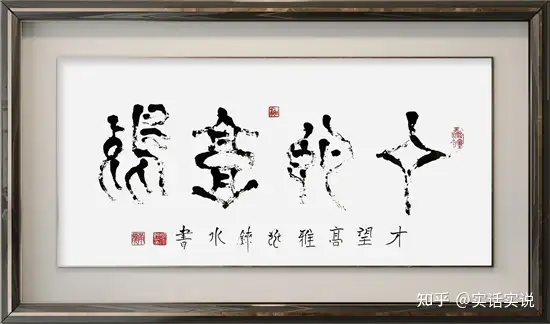 才望高雅
才望高雅 水書
知乎 @实话实说